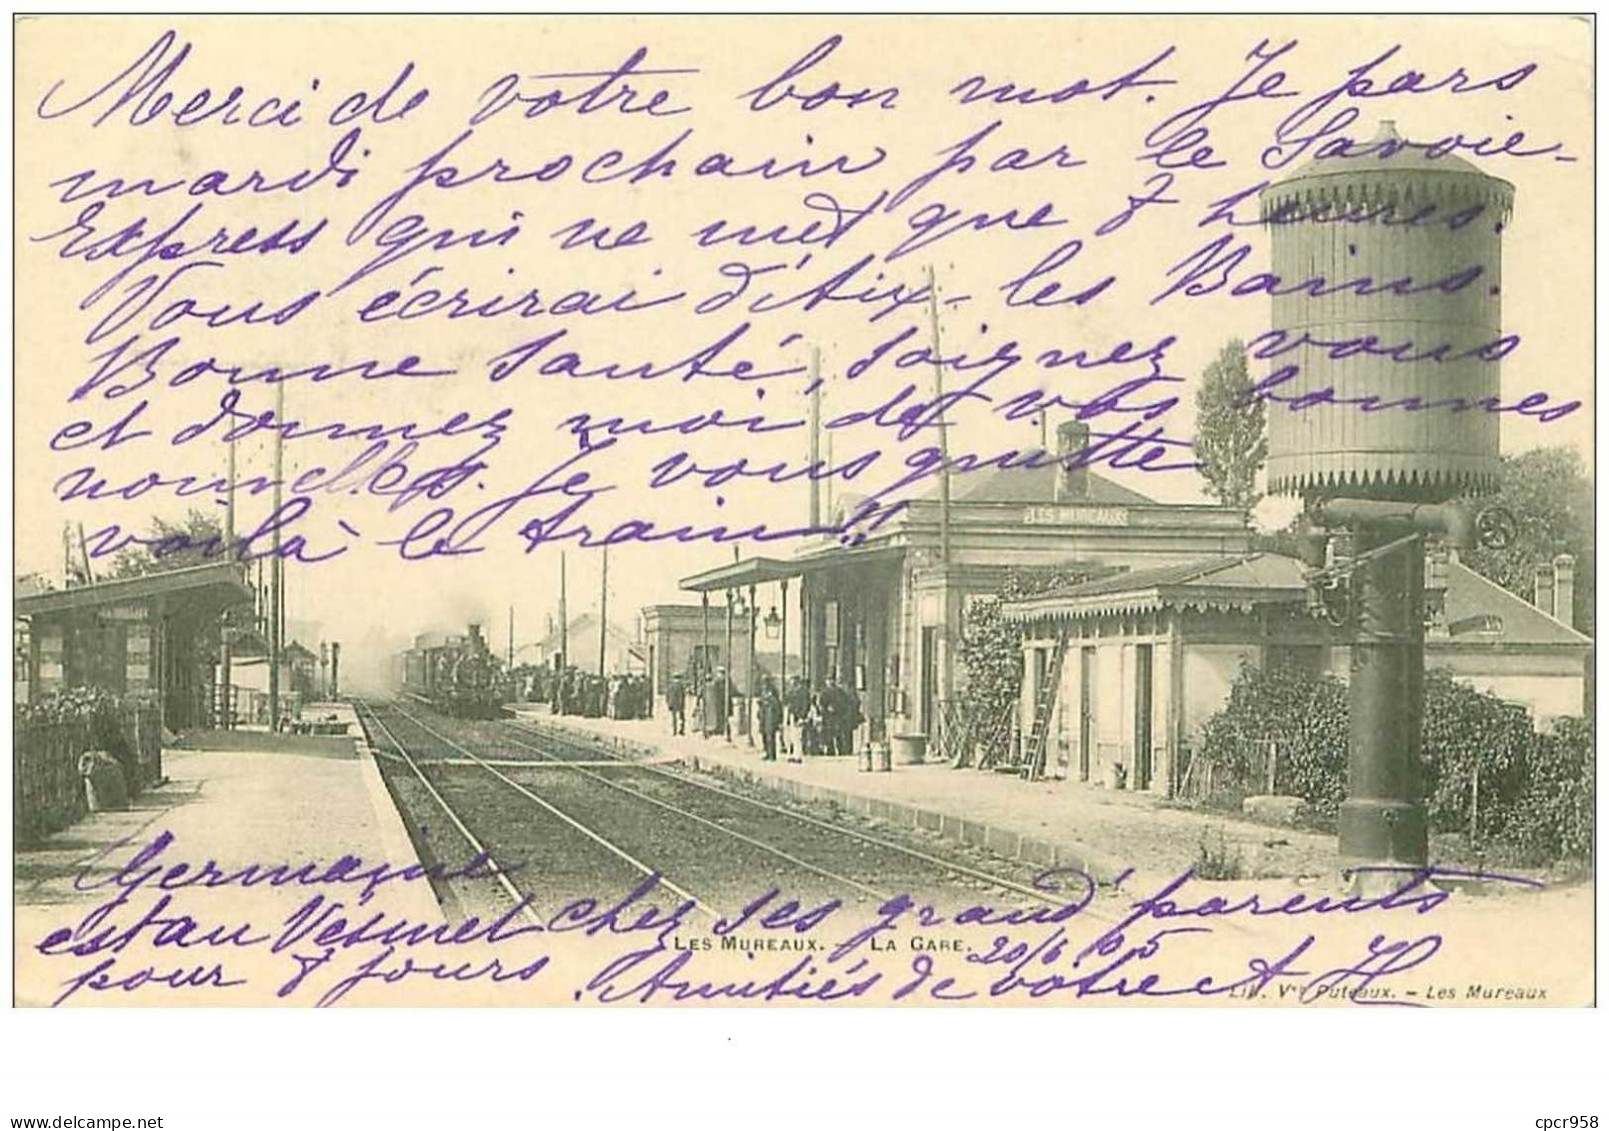 Merci de votre bon mot. Je pars
mardi prochain par le Savoie-
Express qui ne met que 8 heures.
Vous écrirai d'Aix-les Bains.
Bonne santé, soignez vous
et donnez moi de vos bonnes
nouvelles. Je vous quitte
voilà le train!!
LES MUREAUX
Germaine
est au Vésinet chez ses grand'parents
LES MUREAUX. — LA GARE. 20/6 05
pour 8 jours. Amitiés de votre
Lib. Vve Puteaux. - Les Mureaux
cpcr958